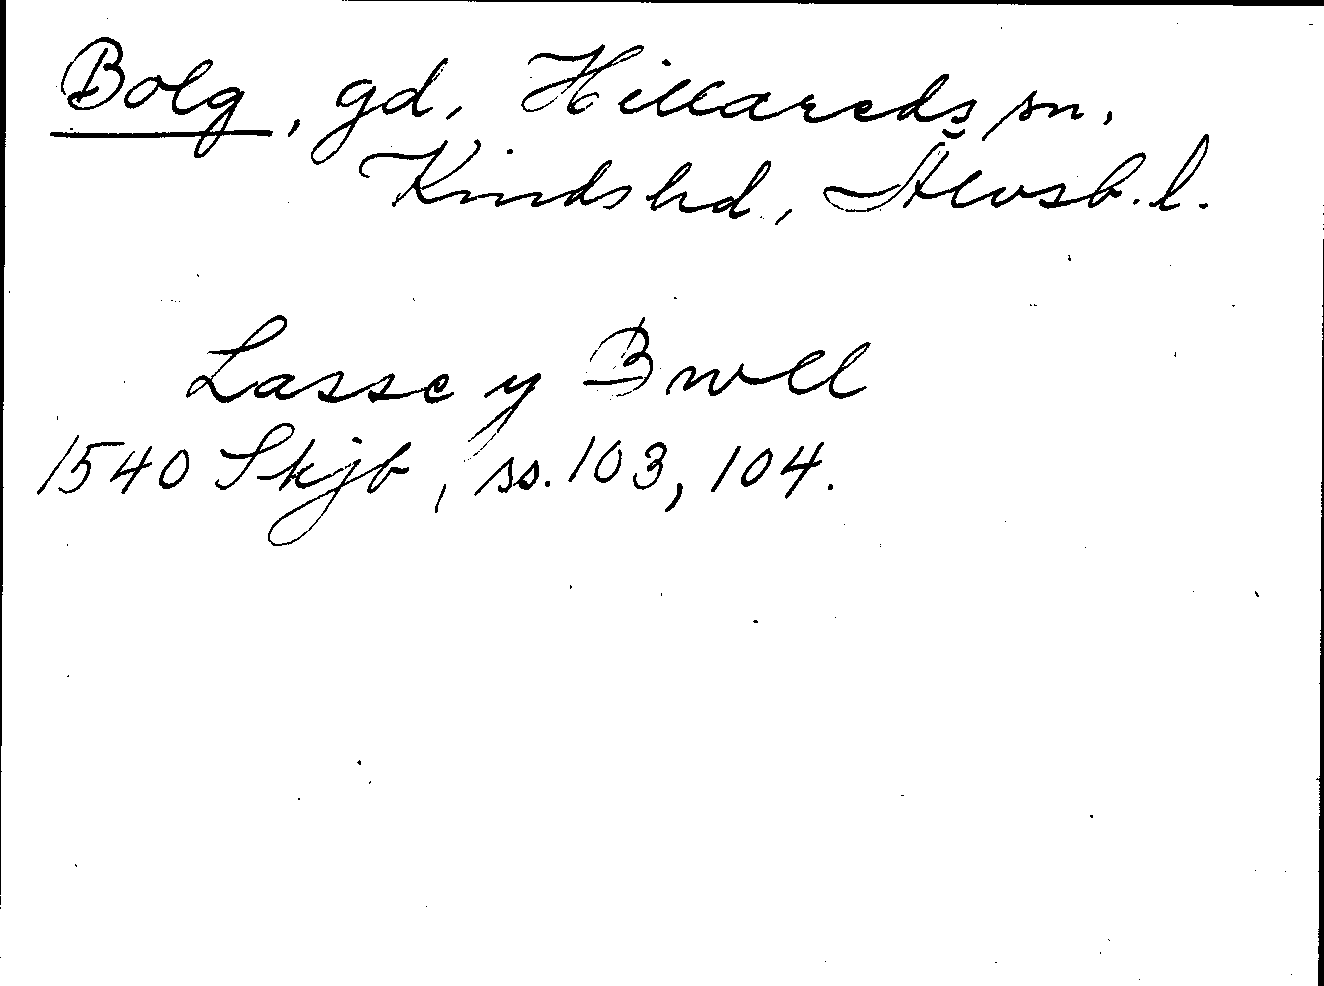 Bolg, gd, Hillareds sn.
Kinds hd, Älvsb. l.
Lasse y Bwll
1540 Skjb, ss. 103, 104.